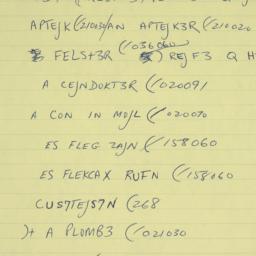 APTEJK (210030/AN APTEJK3R (/210020
(/036060
FELST3R () REJF3 Q H
A CEJNDOKT3R (/020091
A CON IN MDJL (/020070
ES FLEG ZAJN (/158060
ES FLEKCAX RUFN (/158060
CUSTTEJSTN (268
)+ A PLOMB3 (/021030